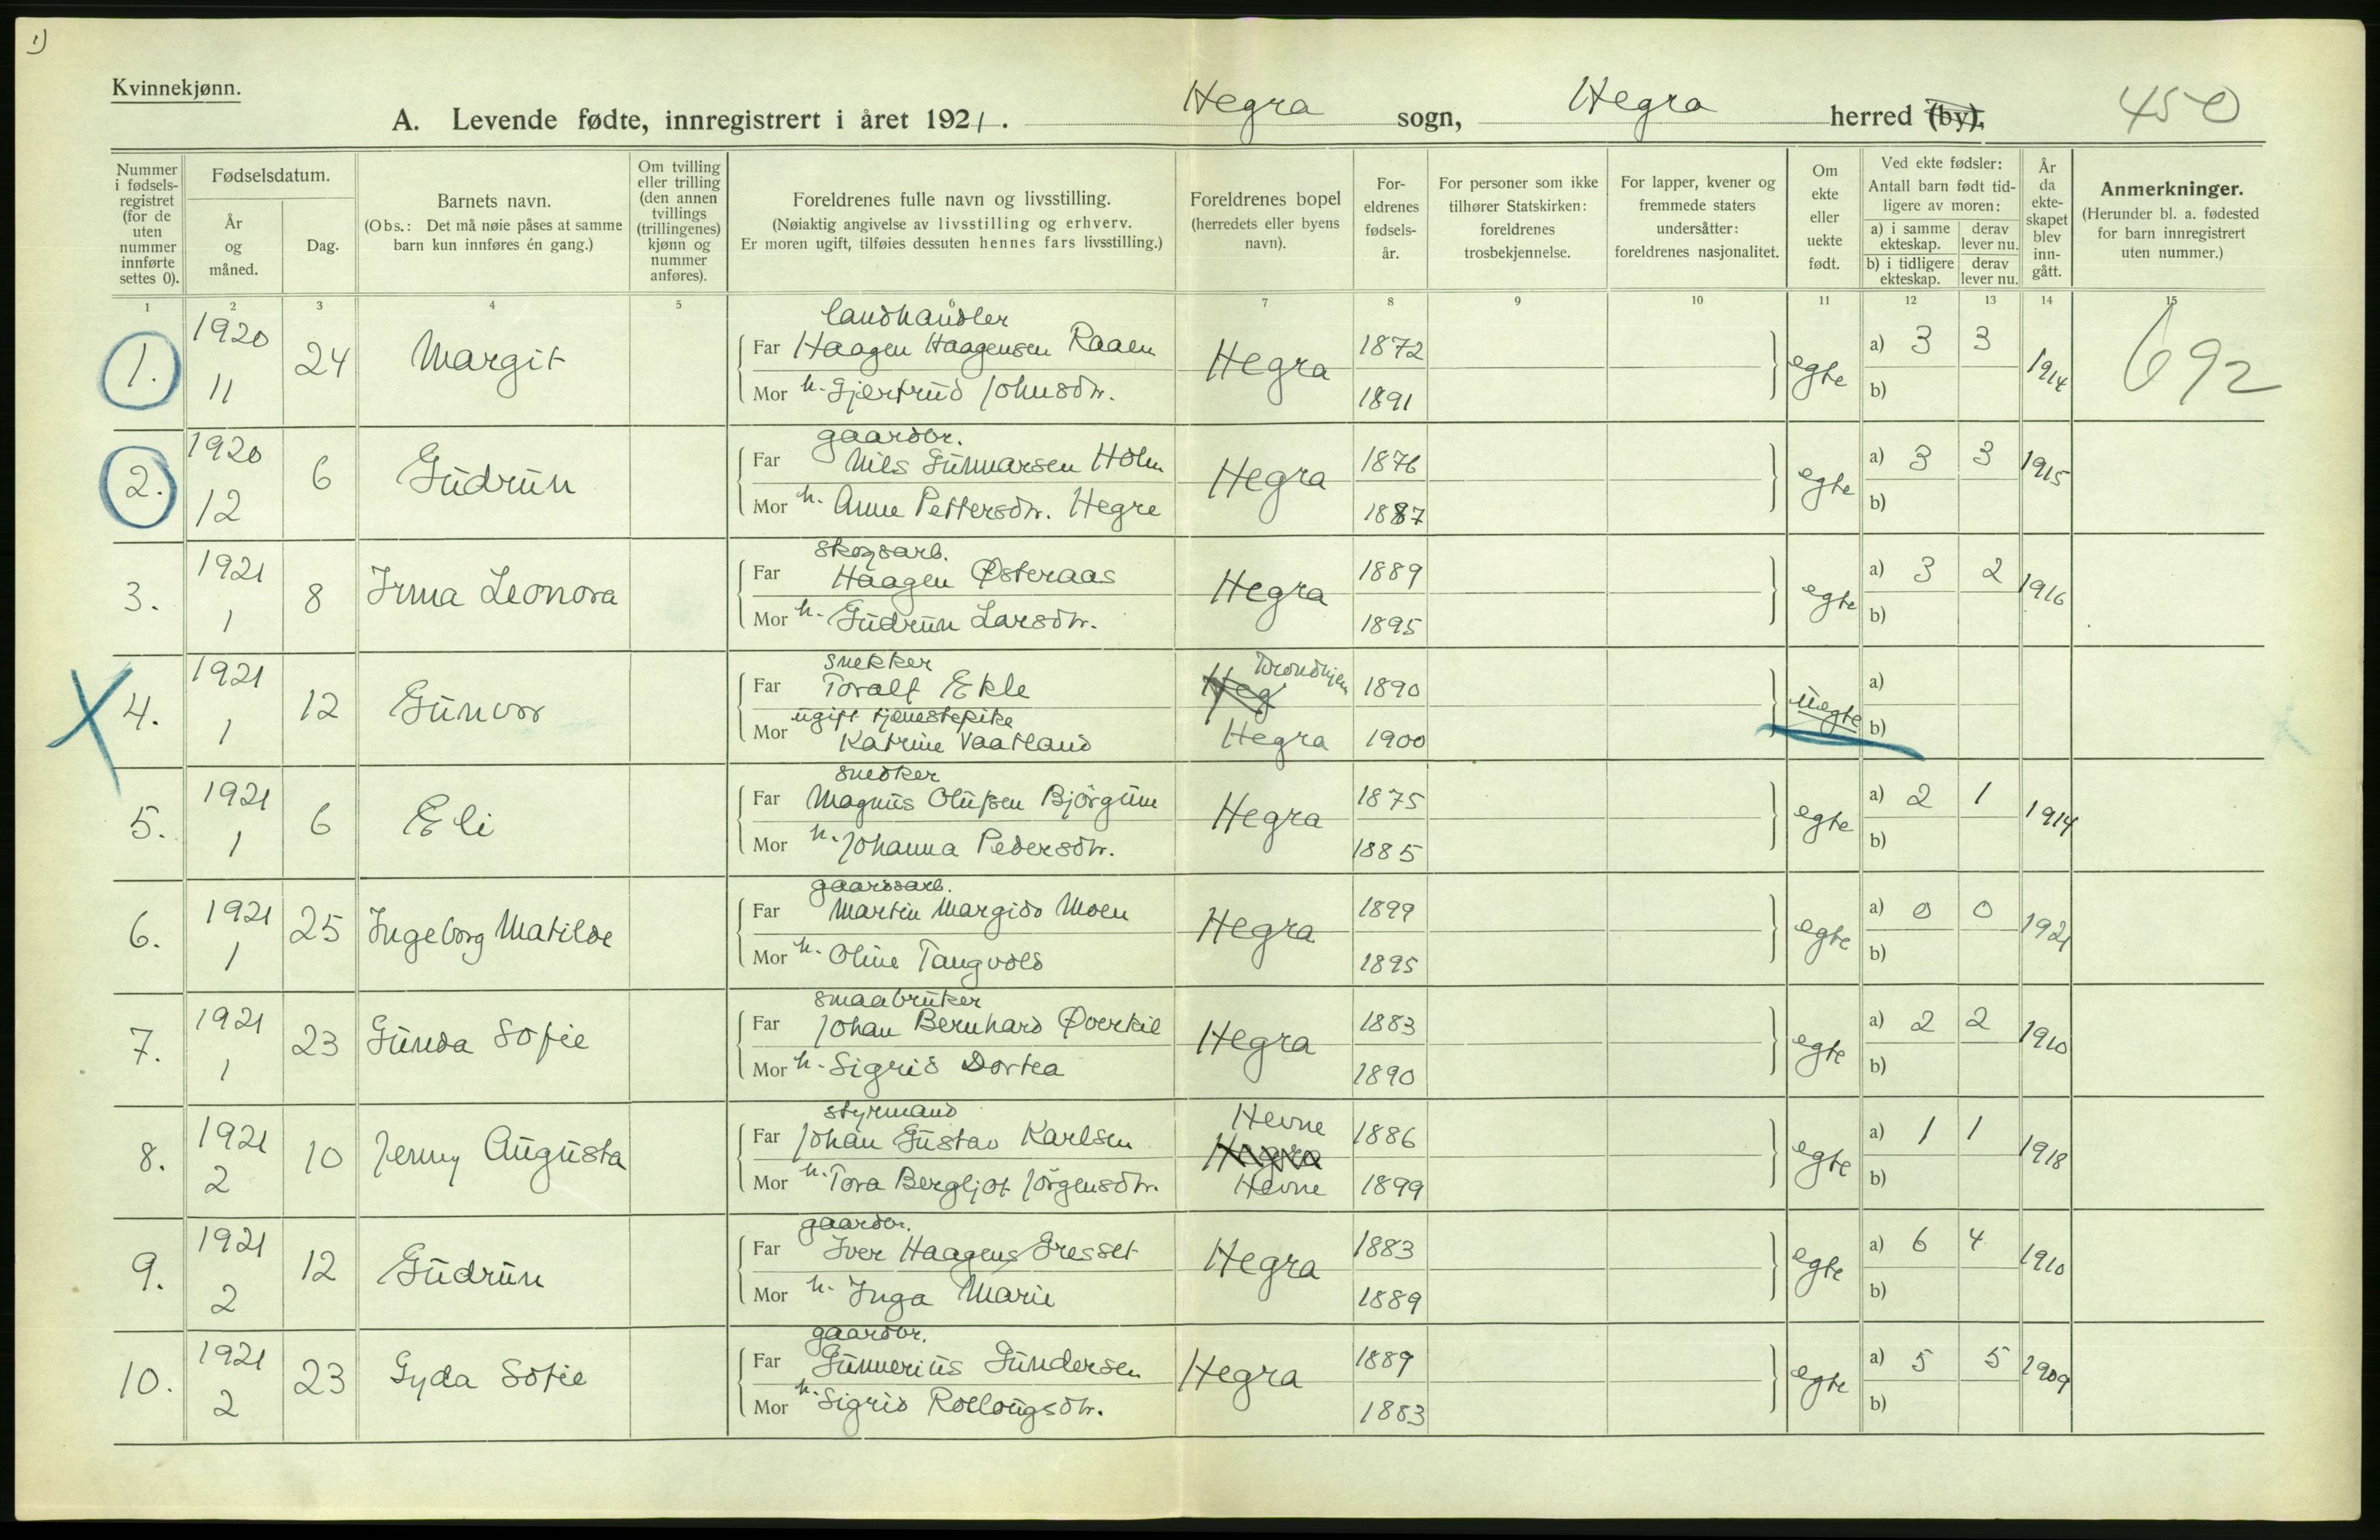 1)
Kvinnekjønn.
A. Levende fødte, innregistrert i året 1921. Hegra sogn, Hegra herred (by). 450
Nummer i fødselsregistret (for de uten nummer innførte settes 0).
Fødselsdatum.
År og måned.
Dag.
Barnets navn.
(Obs.: Det må nøie påses at samme barn kun innføres én gang.)
Om tvilling eller trilling (den annen tvillings (trillingenes) kjønn og nummer anføres).
Foreldrenes fulle navn og livsstilling.
(Nøiaktig angivelse av livsstilling og erhverv. Er moren ugift, tilføies dessuten hennes fars livsstilling.)
Foreldrenes bopel (herredets eller byens navn).
Foreldrenes fødselsår.
For personer som ikke tilhører Statskirken: foreldrenes trosbekjennelse.
For lapper, kvener og fremmede staters undersåtter: foreldrenes nasjonalitet.
Om ekte eller uekte født.
Ved ekte fødsler: Antall barn født tidligere av moren:
a) i samme ekteskap. derav lever nu.
b) i tidligere ekteskap. derav lever nu.
År da ekteskapet blev inngått.
Anmerkninger.
(Herunder bl. a. fødested for barn innregistrert uten nummer.)
1 2 3 4 5 6 7 8 9 10 11 12 13 14 15
landhandler
1. 1920 11 24 Margit Far Haagen Haagensen Raaen Hegra 1872 egte a) 3 3 1914 692
Mor h. Gjertrud Johnsdtr. 1891 b)
gaardbr.
2. 1920 12 6 Gudrun Far Nils Gunnarsen Holm Hegra 1876 egte a) 3 3 1915
Mor h. Anne Pettersdtr. Hegre 1887 b)
skogsarb.
3. 1921 1 8 Irma Leonora Far Haagen Østeraas Hegra 1889 egte a) 3 2 1916
Mor h. Gudrun Larsdtr. 1895 b)
snekker
4. 1921 1 12 Gunvor Far Toralf Ekle Heg Trondhjem 1890 uegte a)
ugift tjenestepike
Mor Katrine Vaatland Hegra 1900 b)
snedker
5. 1921 1 6 Eli Far Magnus Olufsen Bjørgum Hegra 1875 egte a) 2 1 1914
Mor h. Johanna Pedersdtr. 1885 b)
gaardsarb.
6. 1921 1 25 Ingeborg Matilde Far Martin Margido Moen Hegra 1899 egte a) 0 0 1921
Mor h. Oline Tangvold 1895 b)
smaabruker
7. 1921 1 23 Gunda Sofie Far Johan Bernhard Øverkil Hegra 1883 egte a) 2 2 1910
Mor h. Sigrid Dortea 1890 b)
styrmand
8. 1921 2 10 Jenny Augusta Far Johan Gustav Karlsen Hevne Hegra 1886 egte a) 1 1 1918
Mor h. Tora Bergljot Jörgensdtr. Hevne 1899 b)
gaardbr.
9. 1921 2 12 Gudrun Far Iver Haagens Gresset Hegra 1883 egte a) 6 4 1910
Mor h. Inga Marie 1889 b)
gaardbr.
10. 1921 2 23 Gyda Sofie Far Gunnerius Gundersen Hegra 1889 egte a) 5 5 1909
Mor h. Sigrid Rollaugsdtr. 1883 b)